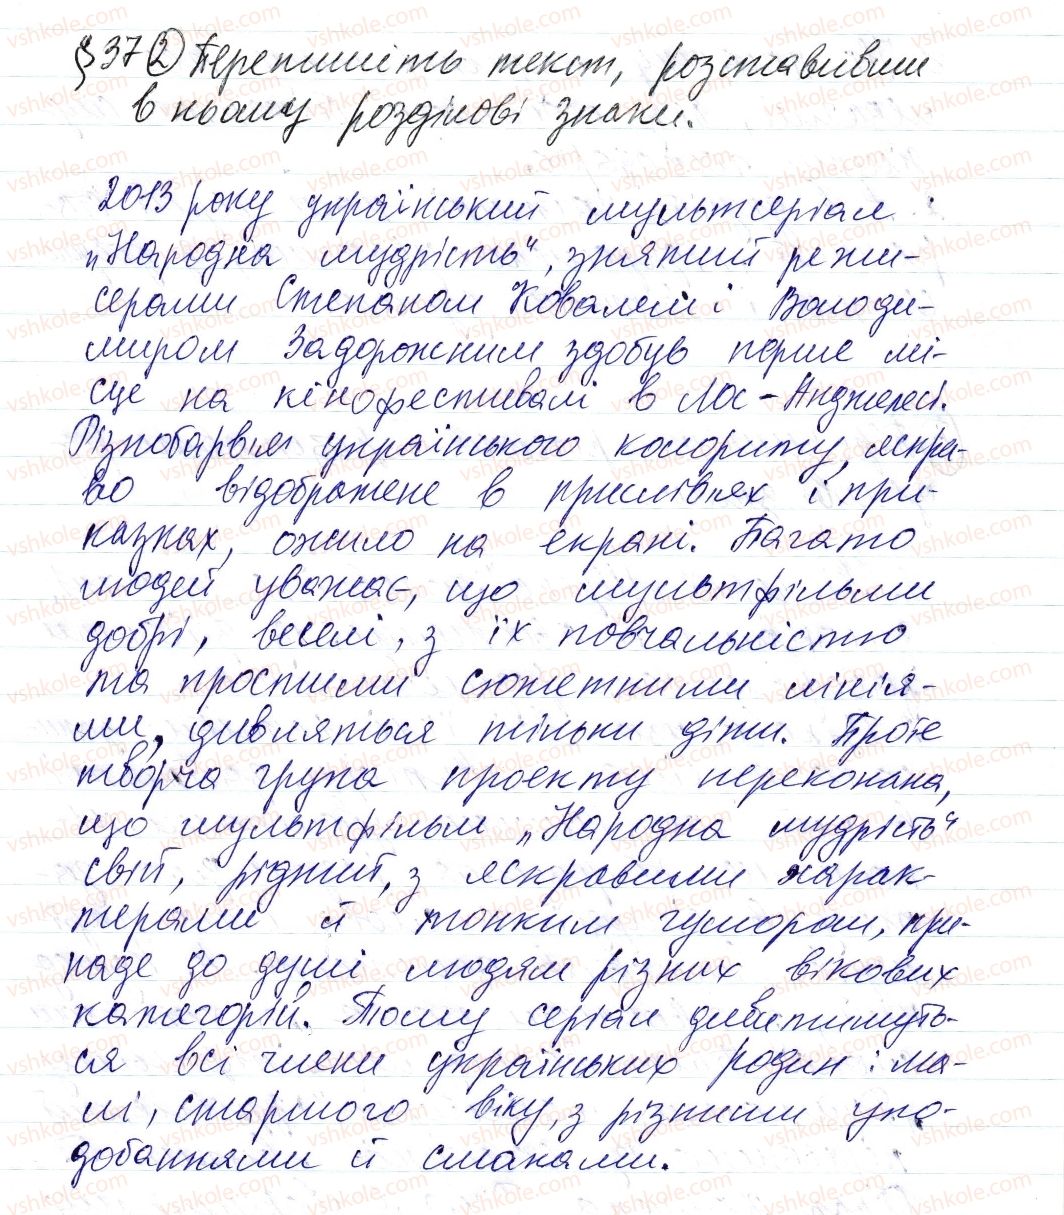 § 37 2 Перепишіть текст, розставивши
в ньому розділові знаки.
2013 року український мультсеріал
„Народна мудрість“, знятий режи-
серами Степаном Ковалем і Володи-
миром Задорожним здобув перше мі-
сце на кінофестивалі в Лос-Анджелесі.
Різнобарв'я українського колориту, яскра-
во відображене в прислів'ях і при-
казках, ожило на екрані. Багато
людей уважає, що мультфільми
добрі, веселі, з їх повчальністю
та простими сюжетними лінія-
ми, дивляться тільки діти. Проте
творча група проекту переконана,
що мультфільм „Народна мудрість“
свій, рідний, з яскравими харак-
терами й тонким гумором, при-
паде до душі людям різних вікових
категорій. Тому серіал дивитимуть-
ся всі члени українських родин: ма-
лі, старшого віку, з різними упо-
добаннями й смаками.